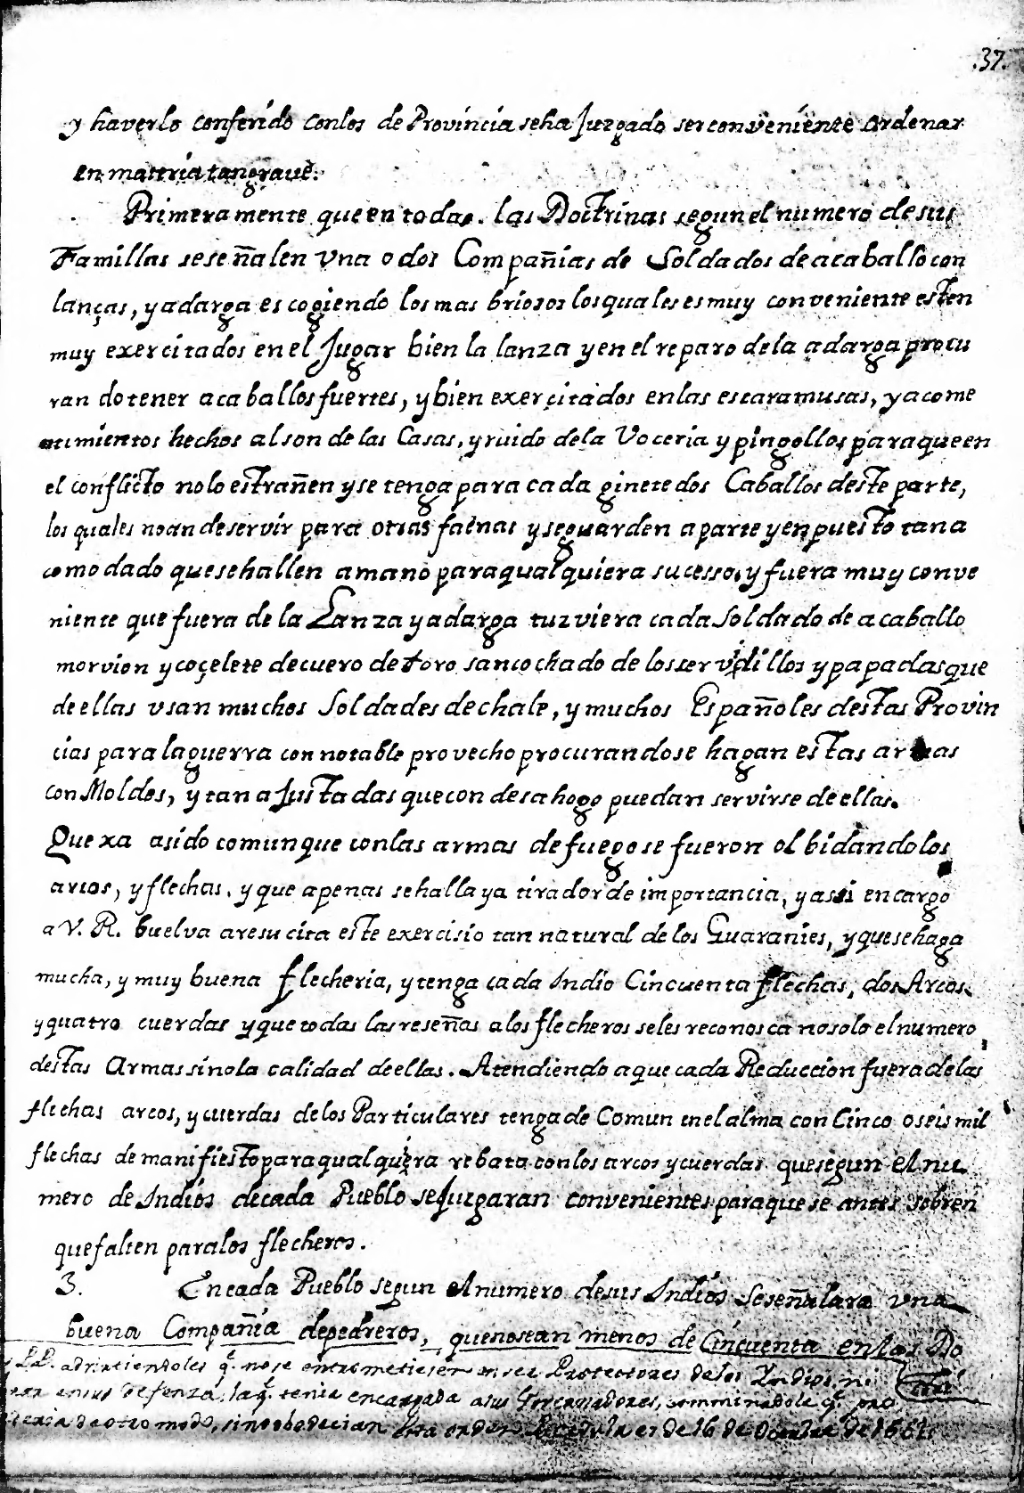 .37.
y haverlo conferido conlos de Provincia seha Juzgado ser conveniente ordenar
en materia tan grave.
Primera mente que en todas. las Doctrinas segun el numero de sus
Familias se señalen vna o dos Compañias de Soldados de acaballo con
lanças, y adarga escogiendo los mas briosos los quales es muy conveniente esten
muy exercitados en el Jugar bien la lanza y en el reparo dela adarga procu
ran do tener acaballos fuertes, y bien exerçitados enlas escaramusas, y acome
timientos hechos al son de las Casas, y ruido dela Voceria y pingollos paraque en
el conflicto nolo estrañen y se tenga para cada ginete dos Caballos deste parte,
los quales noan de servir para otras faenas y seguarden aparte y en puesto tan a
comodado que se hallen amano paraqualquiera sucesso, y fuera muy conve
niente que fuera de la Lanza y adarga tuzviera cada Soldado de acaballo
morvion y coçelete decuero de toro sancochado de los servidillos y papadas que
de ellas vsan muchos Soldades dechale, y muchos Españoles destas Provin
cias para laguerra con notable provecho procurandose hagan estas armas
con Moldes, y tan aJustadas que con desahogo puedan servirse de ellas.
Quexa asido comun que con las armas de fuego se fueron olbidando los
arcos, y flechas. y que apenas se halla ya tirador de importancia, y assi encargo
a V. R. buelva aresucita este exercisio tan natural de los Guaranies, y que se haga
mucha, y muy buena flecheria, y tenga cada Indio Cincuenta flechas, dos Arcos
y quatro cuerdas y que todas las reseñas alos flecheros seles reconosca nosolo el numero
destas Armas sinola calidad de ellas. Atendiendo aque cada Reduccion fuera de las
flechas arcos, y cuerdas delos Particulares tenga de Comun en el alma con Cinco oseis mil
flechas de manifiesto para qualquiera rebato con los arcos y cuerdas que segun el nu
mero de Indios decada Pueblo se Juzgaran convenientes paraque se antes sobren
que falten para los flecheros.
3. En cada Pueblo segun el numero desus Indios Se señalara vna
buena Compañia de pedreros, que no sean menos de Cincuenta en las Do
PP. advirtiendoles q. no se entrometiesen en ser Protectores de los Yndios, ni
en sus defenza, la q. tenia encargada asus Governadores, comminadole q. pro
de otro modo, sino obedecian esta orden. Cedula es de 16 de Octubre de 1661.